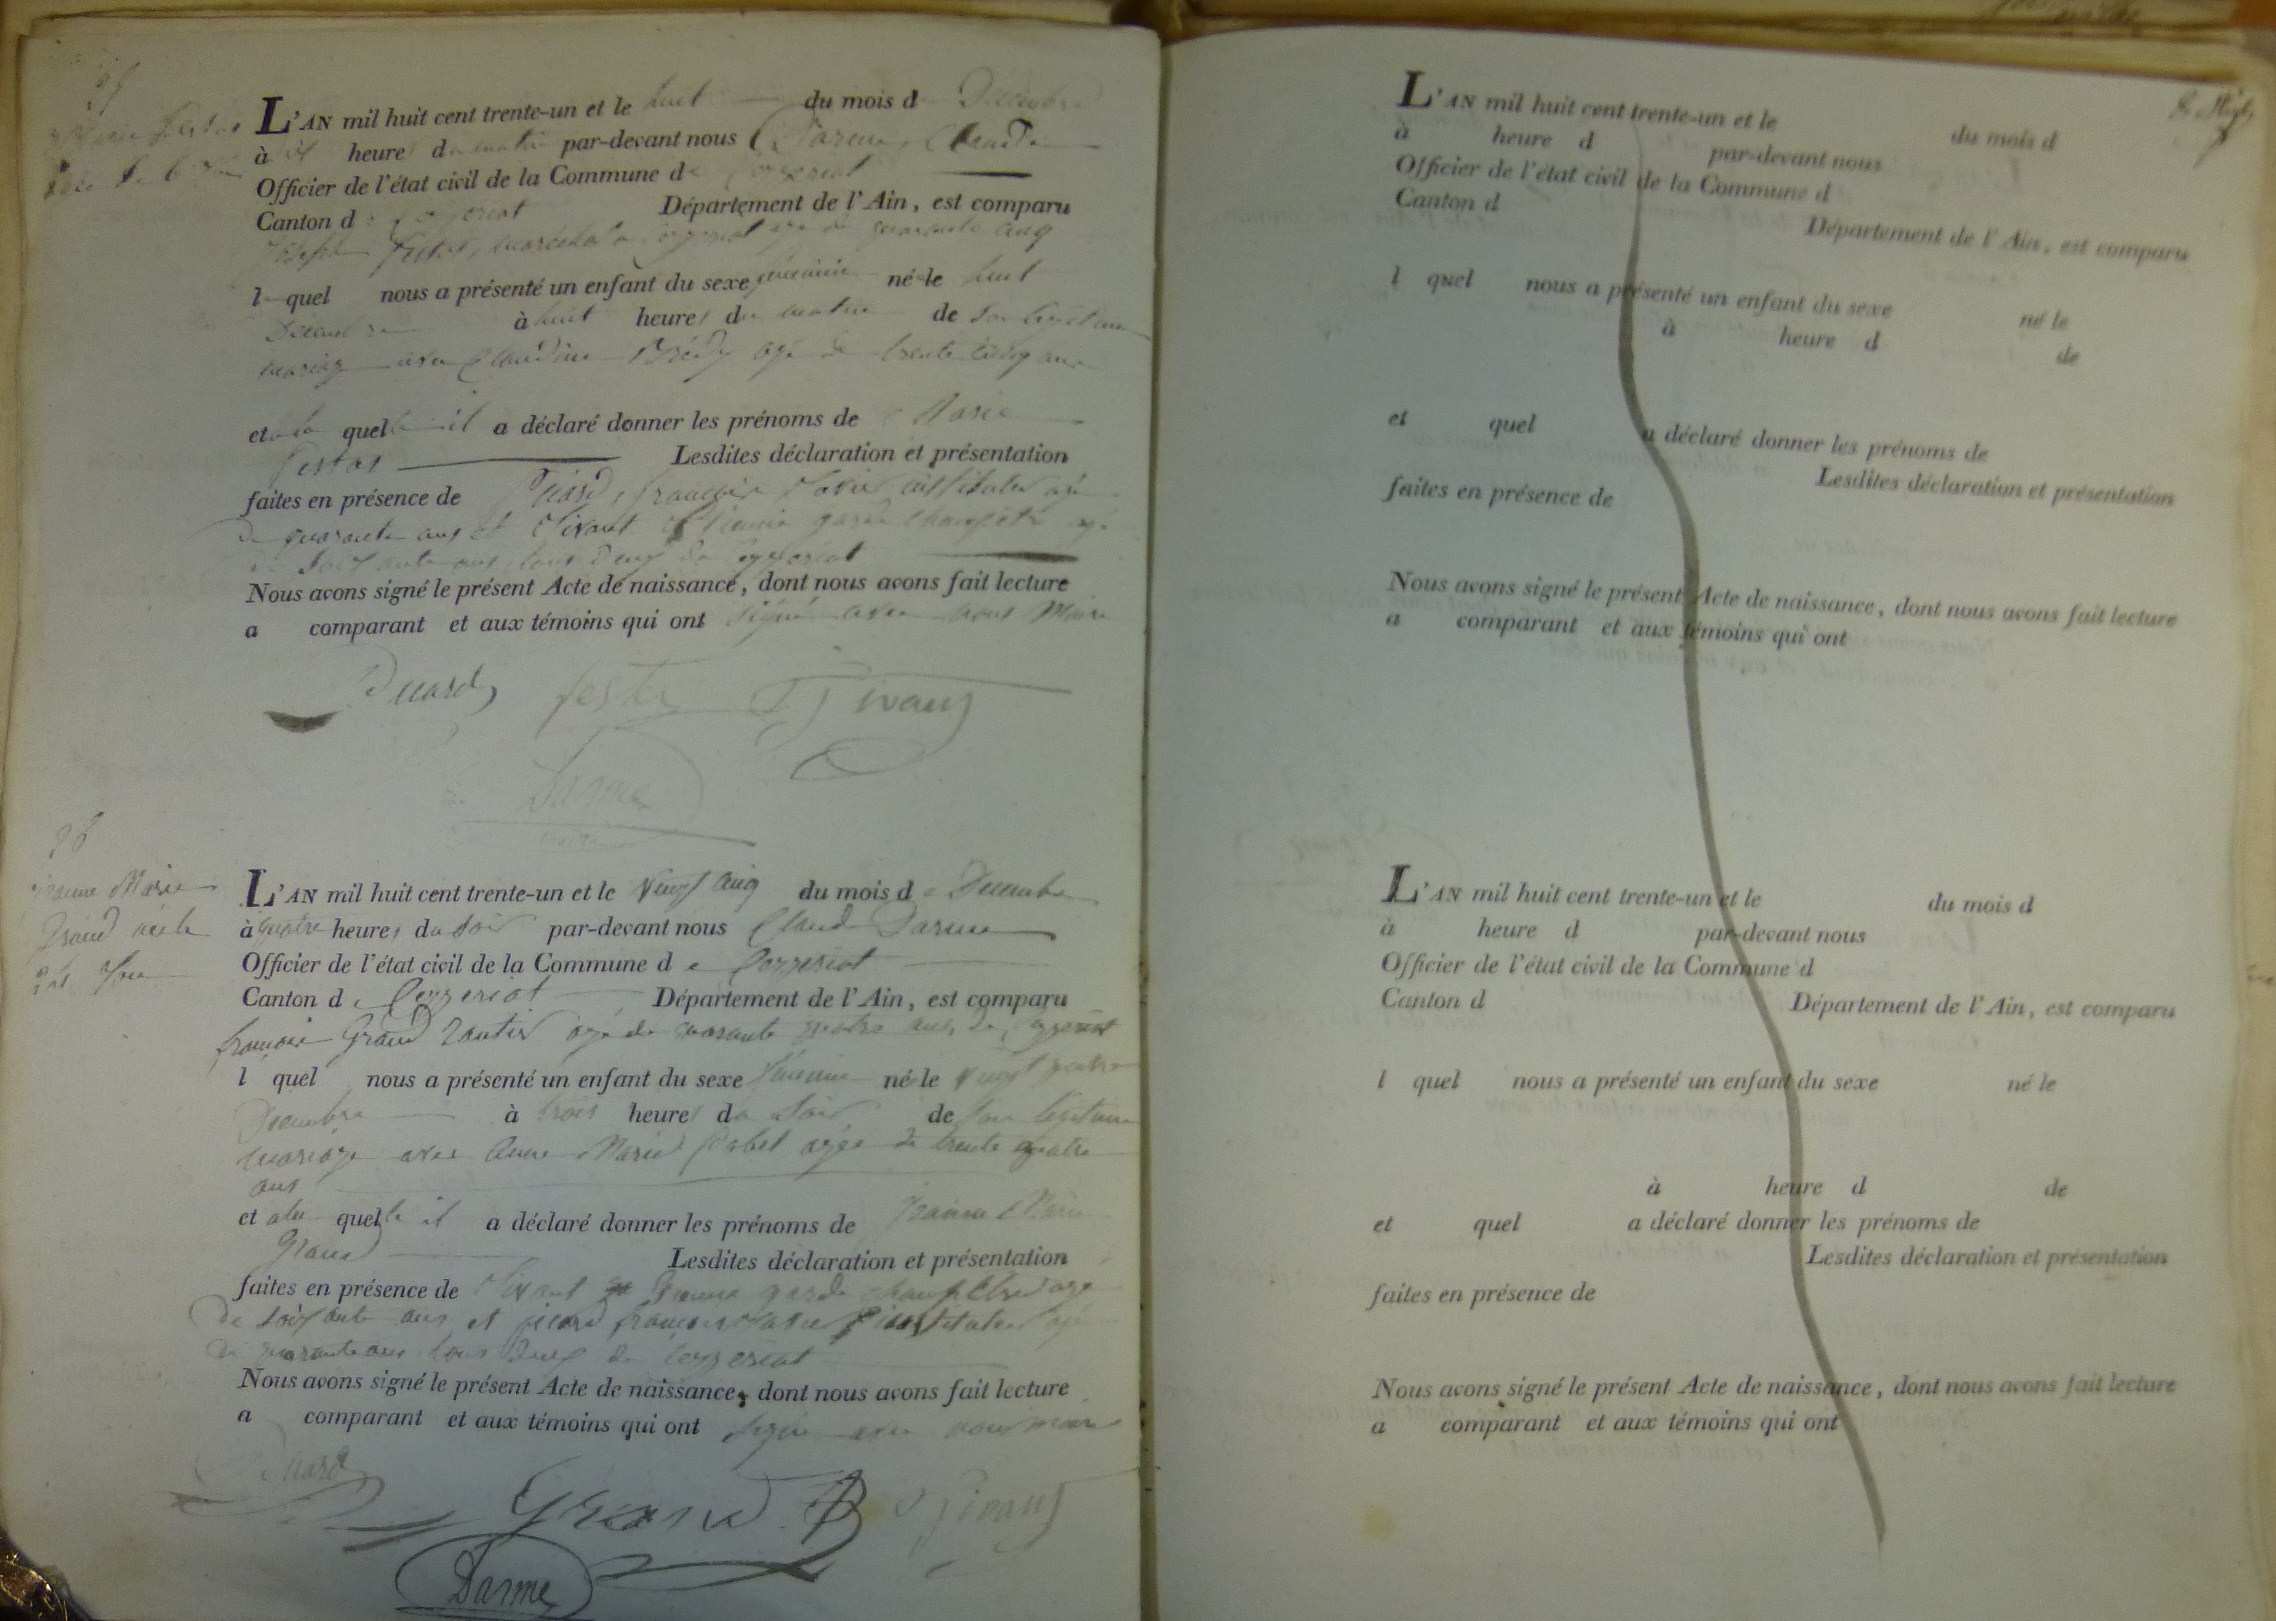 L'AN mil huit cent trente-un et le huit du mois de Décembre
à heures du matin par-devant nous Darme, Claude
Officier de l'état civil de la Commune de Ceyzeriat
Canton de Ceyzeriat Département de l'Ain, est comparu
Joseph festas, maréchal a Ceyzeriat agé de quarante cinq
le quel nous a présenté un enfant du sexe féminin né le huit
Décembre à huit heures du matin de Son légitime
mariage avec Claudine agé de trente cinq ans
et quelle il a déclaré donner les prénoms de Marie
festas Lesdites déclaration et présentation
faites en présence de Picard, françois instituteur agé
De quarante ans et garde champêtre agé
de Soixante ans tous deux de Ceyzeriat
Nous avons signé le présent Acte de naissance, dont nous avons fait lecture
a comparant et aux témoins qui ont Signé avec nous Maire
Picard festas
Darme
maire
96
Jeanne Marie
Grand née le
L'AN mil huit cent trente-un et le vingt cinq du mois de Décembre
à quatre heures du Soir par-devant nous Claude Darme
Officier de l'état civil de la Commune de Ceyzeriat
Canton de Ceyzeriat Département de l'Ain, est comparu
françois Grand Rentier agé de quarante quatre ans, de Ceyzeriat
l quel nous a présenté un enfant du sexe féminin né le vingt quatre
Décembre à trois heures du Soir de Son légitime
mariage avec Anne Marie agée de trente quatre
ans
et quelle il a déclaré donner les prénoms de Jeanne Marie
Grand Lesdites déclaration et présentation
faites en présence de garde champêtre agé
De Soixante ans et picard françois instituteur agé
De quarante ans tous Deux de Ceyzeriat
Nous avons signé le présent Acte de naissance, dont nous avons fait lecture
a comparant et aux témoins qui ont Signé avec nous maire
Picard Grand
Darme
L'AN mil huit cent trente-un et le du mois d
à heure d par-devant nous
Officier de l'état civil de la Commune d
Canton d Département de l'Ain, est comparu
l quel nous a présenté un enfant du sexe né le
à heure d de
et quel a déclaré donner les prénoms de
Lesdites déclaration et présentation
faites en présence de
Nous avons signé le présent Acte de naissance, dont nous avons fait lecture
a comparant et aux témoins qui ont
L'AN mil huit cent trente-un et le du mois d
à heure d par-devant nous
Officier de l'état civil de la Commune d
Canton d Département de l'Ain, est comparu
l quel nous a présenté un enfant du sexe né le
à heure d de
et quel a déclaré donner les prénoms de
Lesdites déclaration et présentation
faites en présence de
Nous avons signé le présent Acte de naissance, dont nous avons fait lecture
a comparant et aux témoins qui ont